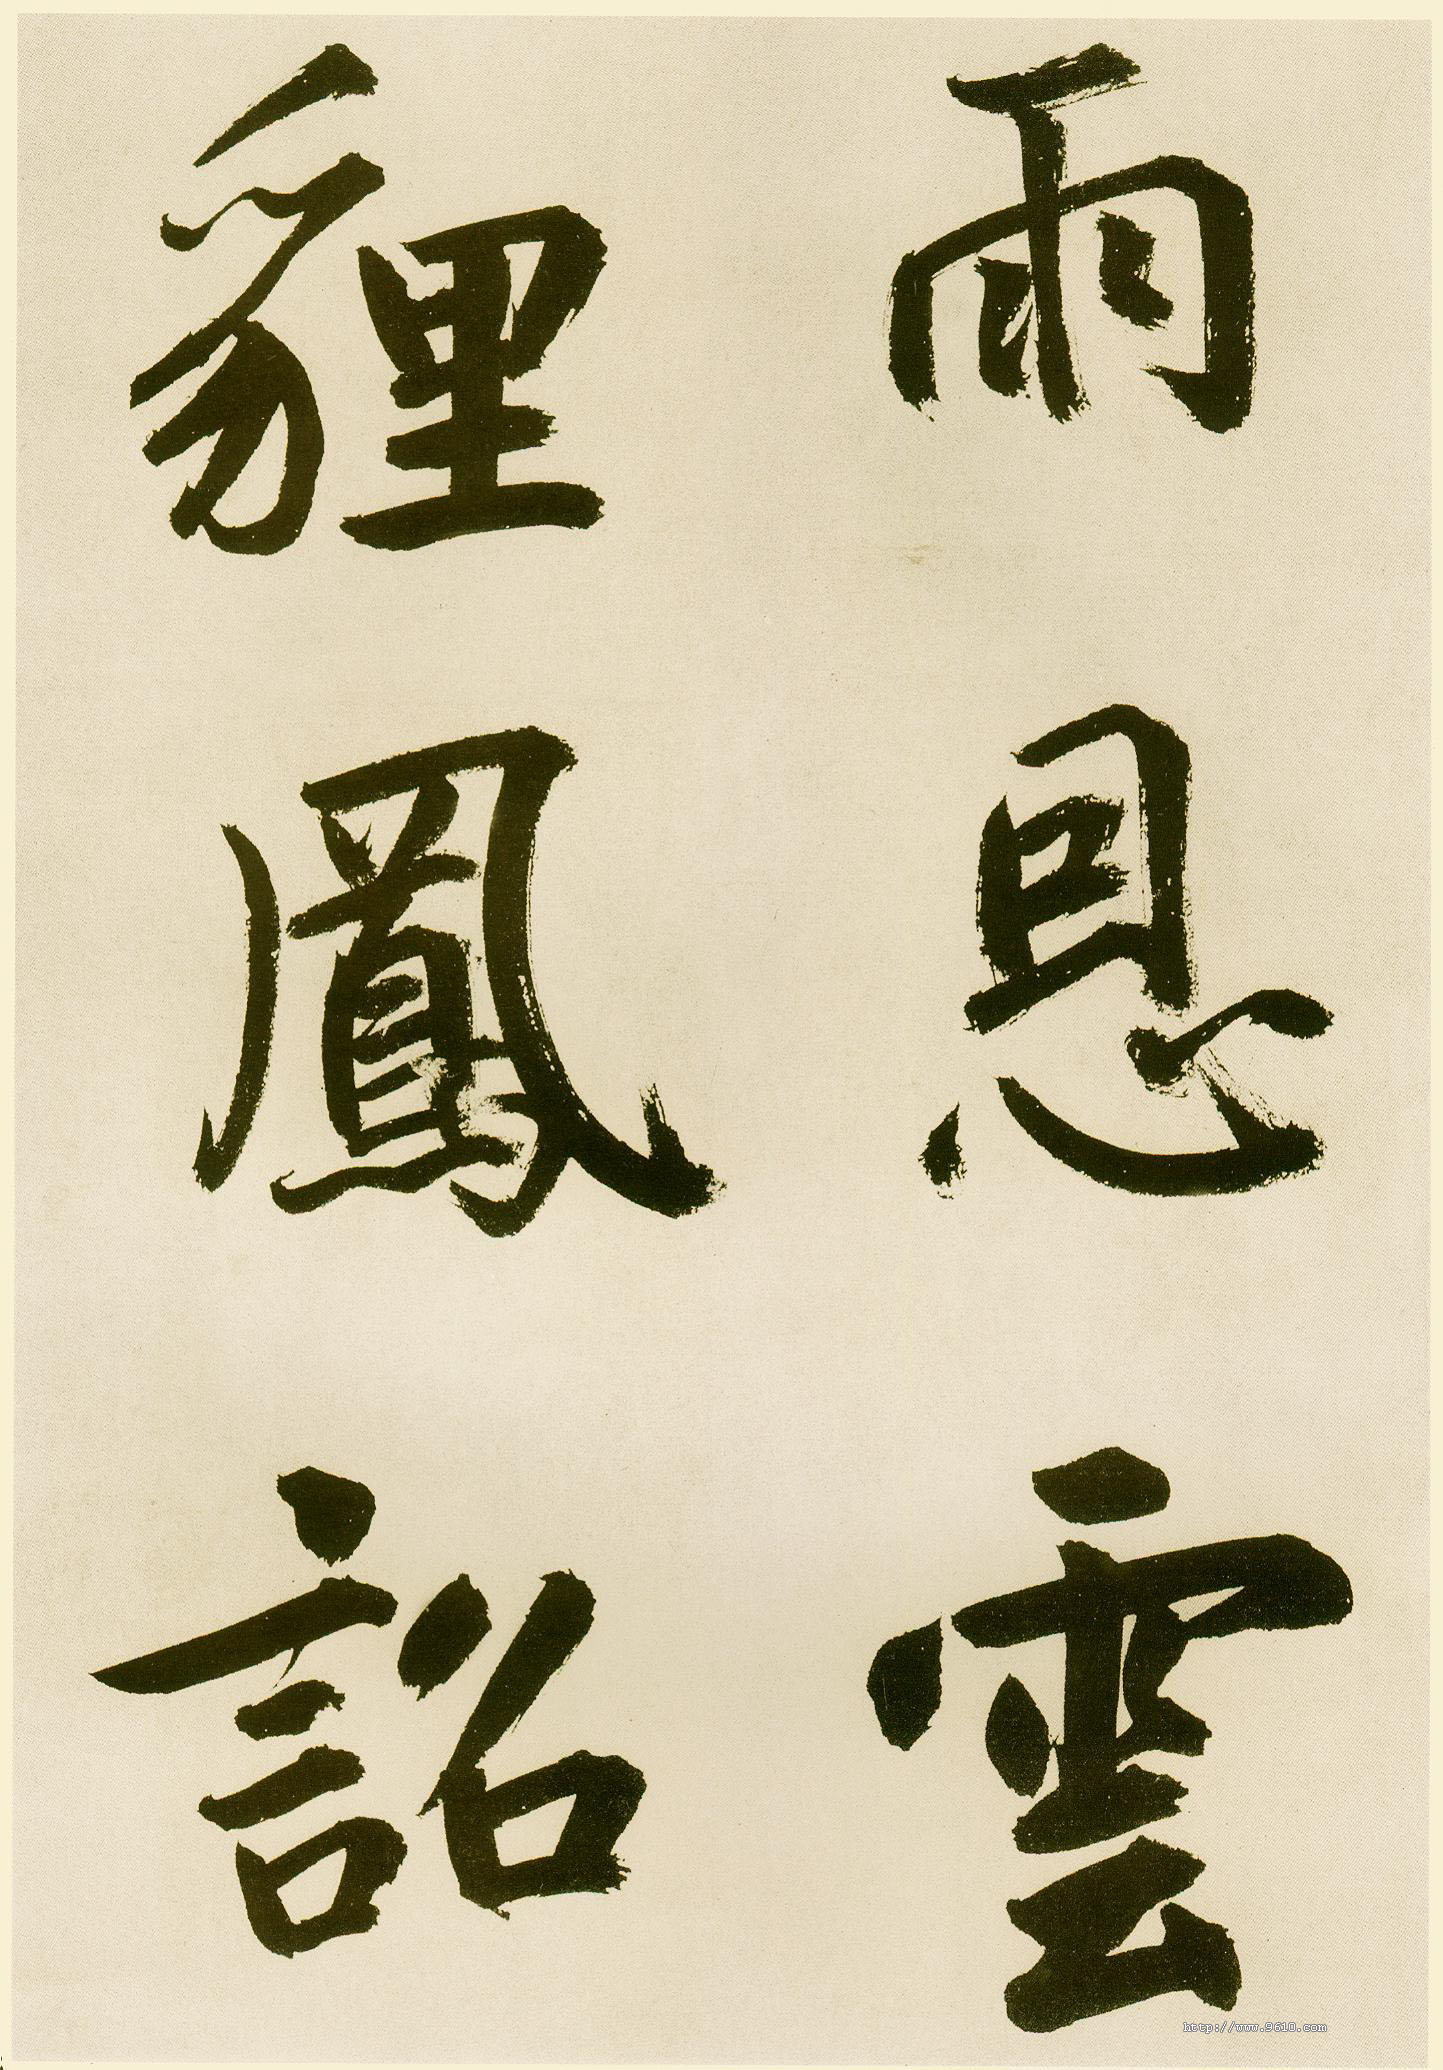 雨恩雲
貍鳳詔
http://www.9610.com